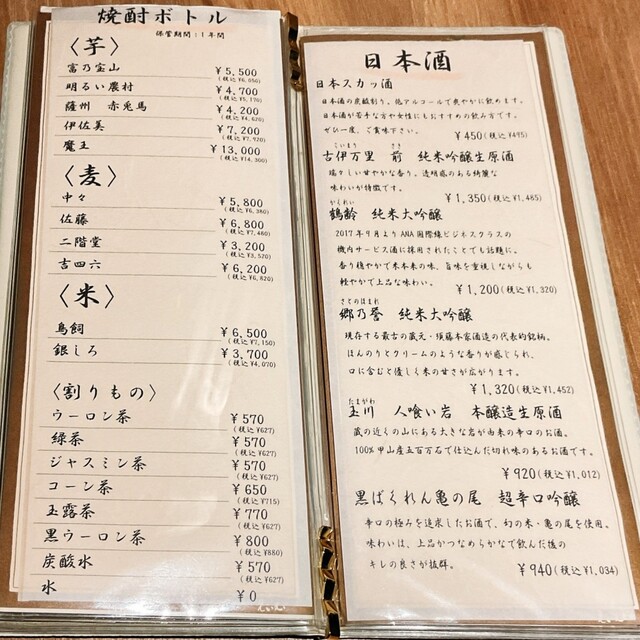 焼酎ボトル
保管期間：1年間
〈芋〉
富乃宝山 ¥5,500
(税込¥6,050)
明るい農村 ¥4,700
(税込¥5,170)
薩州 赤兎馬 ¥4,200
(税込¥4,620)
伊佐美 ¥7,200
(税込¥7,920)
魔王 ¥13,000
(税込¥14,300)
〈麦〉
中々 ¥5,800
(税込¥6,380)
佐藤 ¥6,800
(税込¥7,480)
二階堂 ¥3,200
(税込¥3,520)
吉四六 ¥6,200
(税込¥6,820)
〈米〉
鳥飼 ¥6,500
(税込¥7,150)
銀しろ ¥3,700
(税込¥4,070)
〈割りもの〉
ウーロン茶 ¥570
(税込¥627)
緑茶 ¥570
(税込¥627)
ジャスミン茶 ¥570
(税込¥627)
コーン茶 ¥650
(税込¥715)
玉露茶 ¥770
(税込¥627)
黒ウーロン茶 ¥800
(税込¥880)
炭酸水 ¥570
(税込¥627)
水 ¥0
日本酒
日本スカッ酒
日本酒の炭酸割り。低アルコールで爽やかに飲めます。
日本酒が苦手な方や女性にもおすすめの飲み方です。
ぜひ一度、ご賞味下さい。
¥450(税込¥495)
こいまり さき
古伊万里 前 純米吟醸生原酒
瑞々しい甘やかな香り。透明感のある綺麗な
味わいが特徴です。
¥1,350(税込¥1,485)
かくれい
鶴齢 純米大吟醸
2017年9月よりANA国際線ビジネスクラスの
機内サービス酒に採用されたことでも話題に。
香り穏やかで米本来の味、旨味を重視しながらも
軽やかで上品な味わい。
¥1,200(税込¥1,320)
さとのほまれ
郷乃誉 純米大吟醸
現存する最古の蔵元・須藤本家酒造の代表的銘柄。
ほんのりとクリームのような香りが感じられ、
口に含むと優しく米の甘さが広がります。
¥1,320(税込¥1,452)
たまがわ
玉川 人喰い岩 本醸造生原酒
蔵の近くの山にある大きな岩が由来の辛口のお酒。
100%甲山産五百万石で仕込んだ切れ味のあるお酒です。
¥920(税込¥1,012)
黒ばくれん亀の尾 超辛口吟醸
辛口の極みを追求したお酒で、幻の米・亀の尾を使用。
味わいは、上品かつなめらかなで飲んだ後の
キレの良さが抜群。
¥940(税込¥1,034)